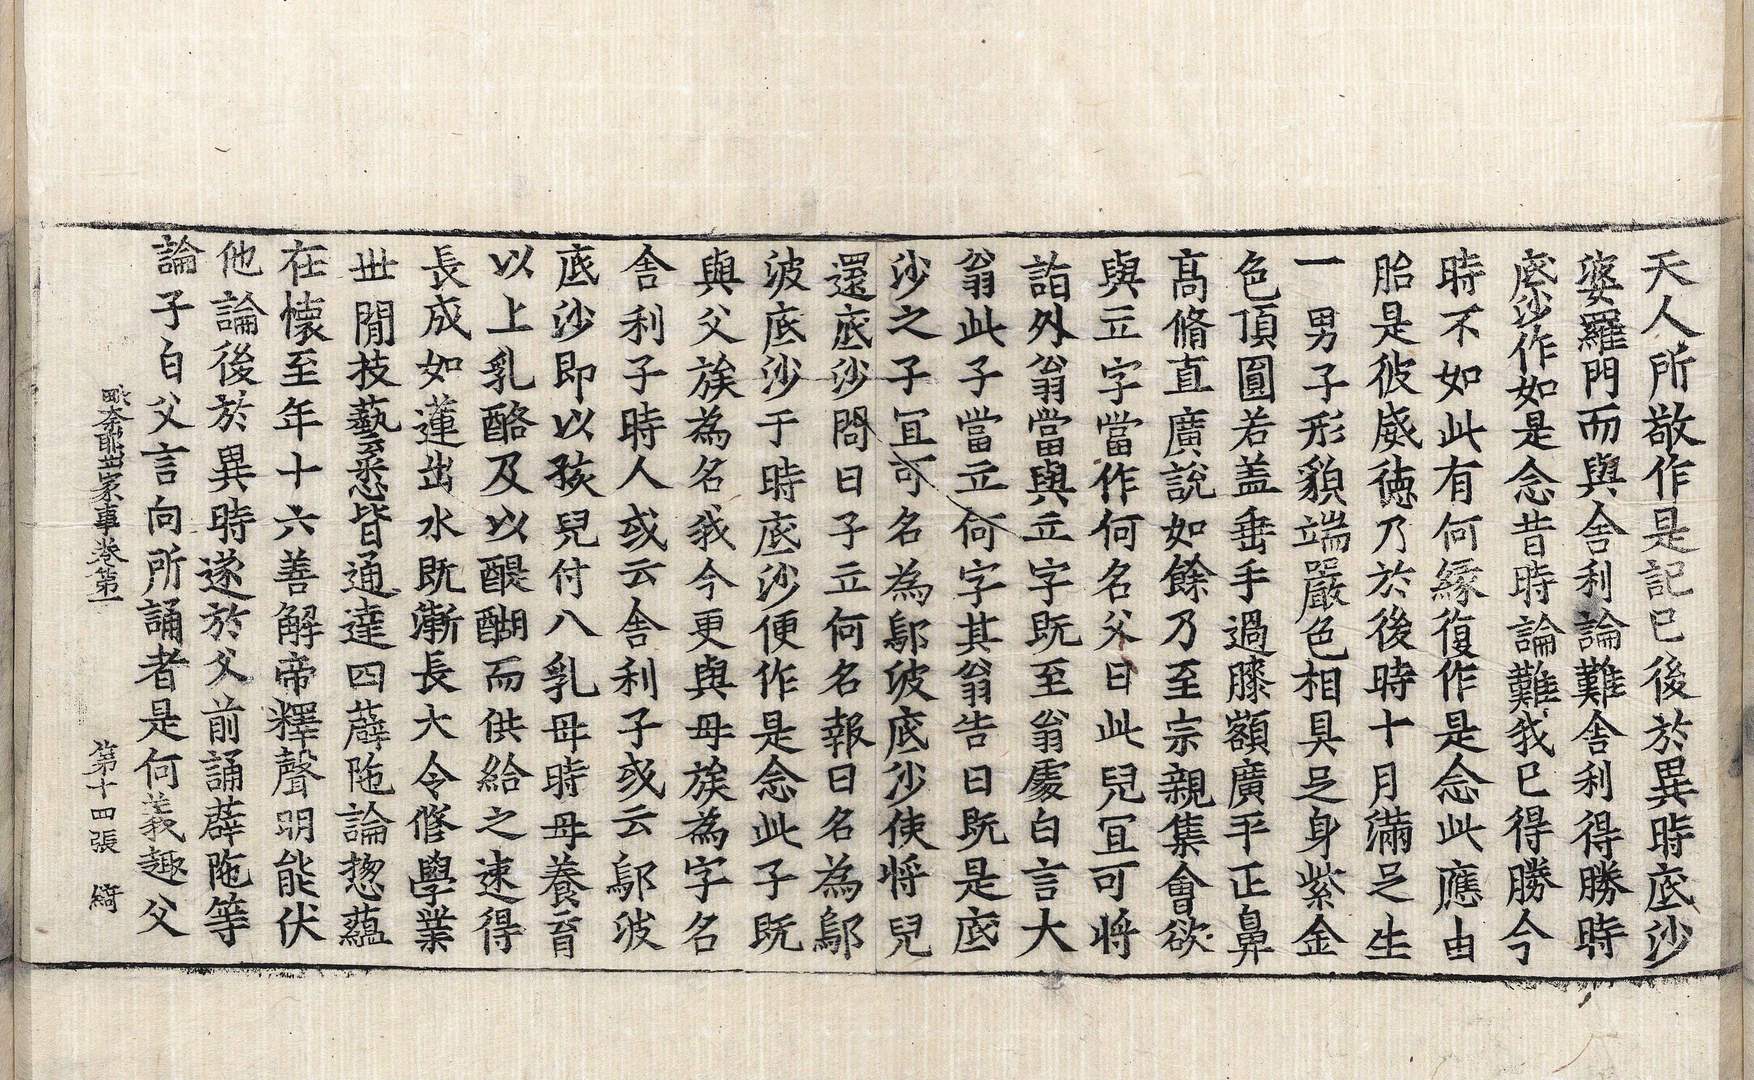 天人所敬作是記已後於異時底沙
婆羅門而與舍利論難舍利得勝時
底沙作如是念昔時論難我已得勝今
時不如此有何縁復作是念此應由
胎是彼威徳乃於後時十月滿足生
一男子形貌端嚴色相具足身紫金
色頂圓若盖垂手過膝額廣平正鼻
髙脩直廣說如餘乃至宗親集會欲
與立字當作何名父曰此兒宜可將
詣外翁當與立字既至翁處白言大
翁此子當立何字其翁告曰既是底
沙之子宜可名為鄔波底沙使將兒
還底沙問曰子立何名報曰名為鄔
波底沙于時底沙便作是念此子既
與父族為名我今更與母族為字名
舍利子時人或云舍利子或云鄔波
底沙即以孩兒付八乳母時母養育
以上乳酪及以醍醐而供給之速得
長成如蓮出水既漸長大令修學業
世間技藝悉皆通達四薜陁論揔蘊
在懷至年十六善解帝釋聲明能伏
他論後於異時遂於父前誦薜陁等
論子白父言向所誦者是何義趣父
毗奈耶出家事卷第一　第十四張　綺